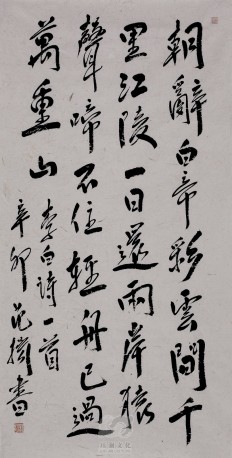 朝辭白帝彩雲間千
里江陵一日還兩岸猿
聲啼不住輕舟已過
萬重山
李白詩一首
辛卯
書